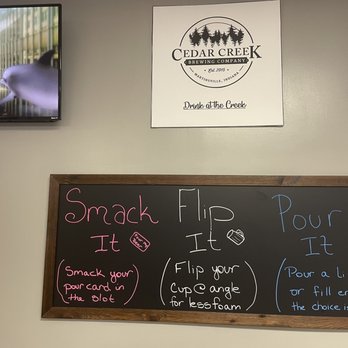 CEDAR CREEK
BREWING COMPANY
Est. 2010
MARTINSVILLE, INDIANA
Drink at the Creek
Smack
It
(Smack your
pour card in
the slot)
Flip
It
(Flip your
Cup @ angle
for less foam)
Pour
It
(Pour a li
or fill en
the choice is